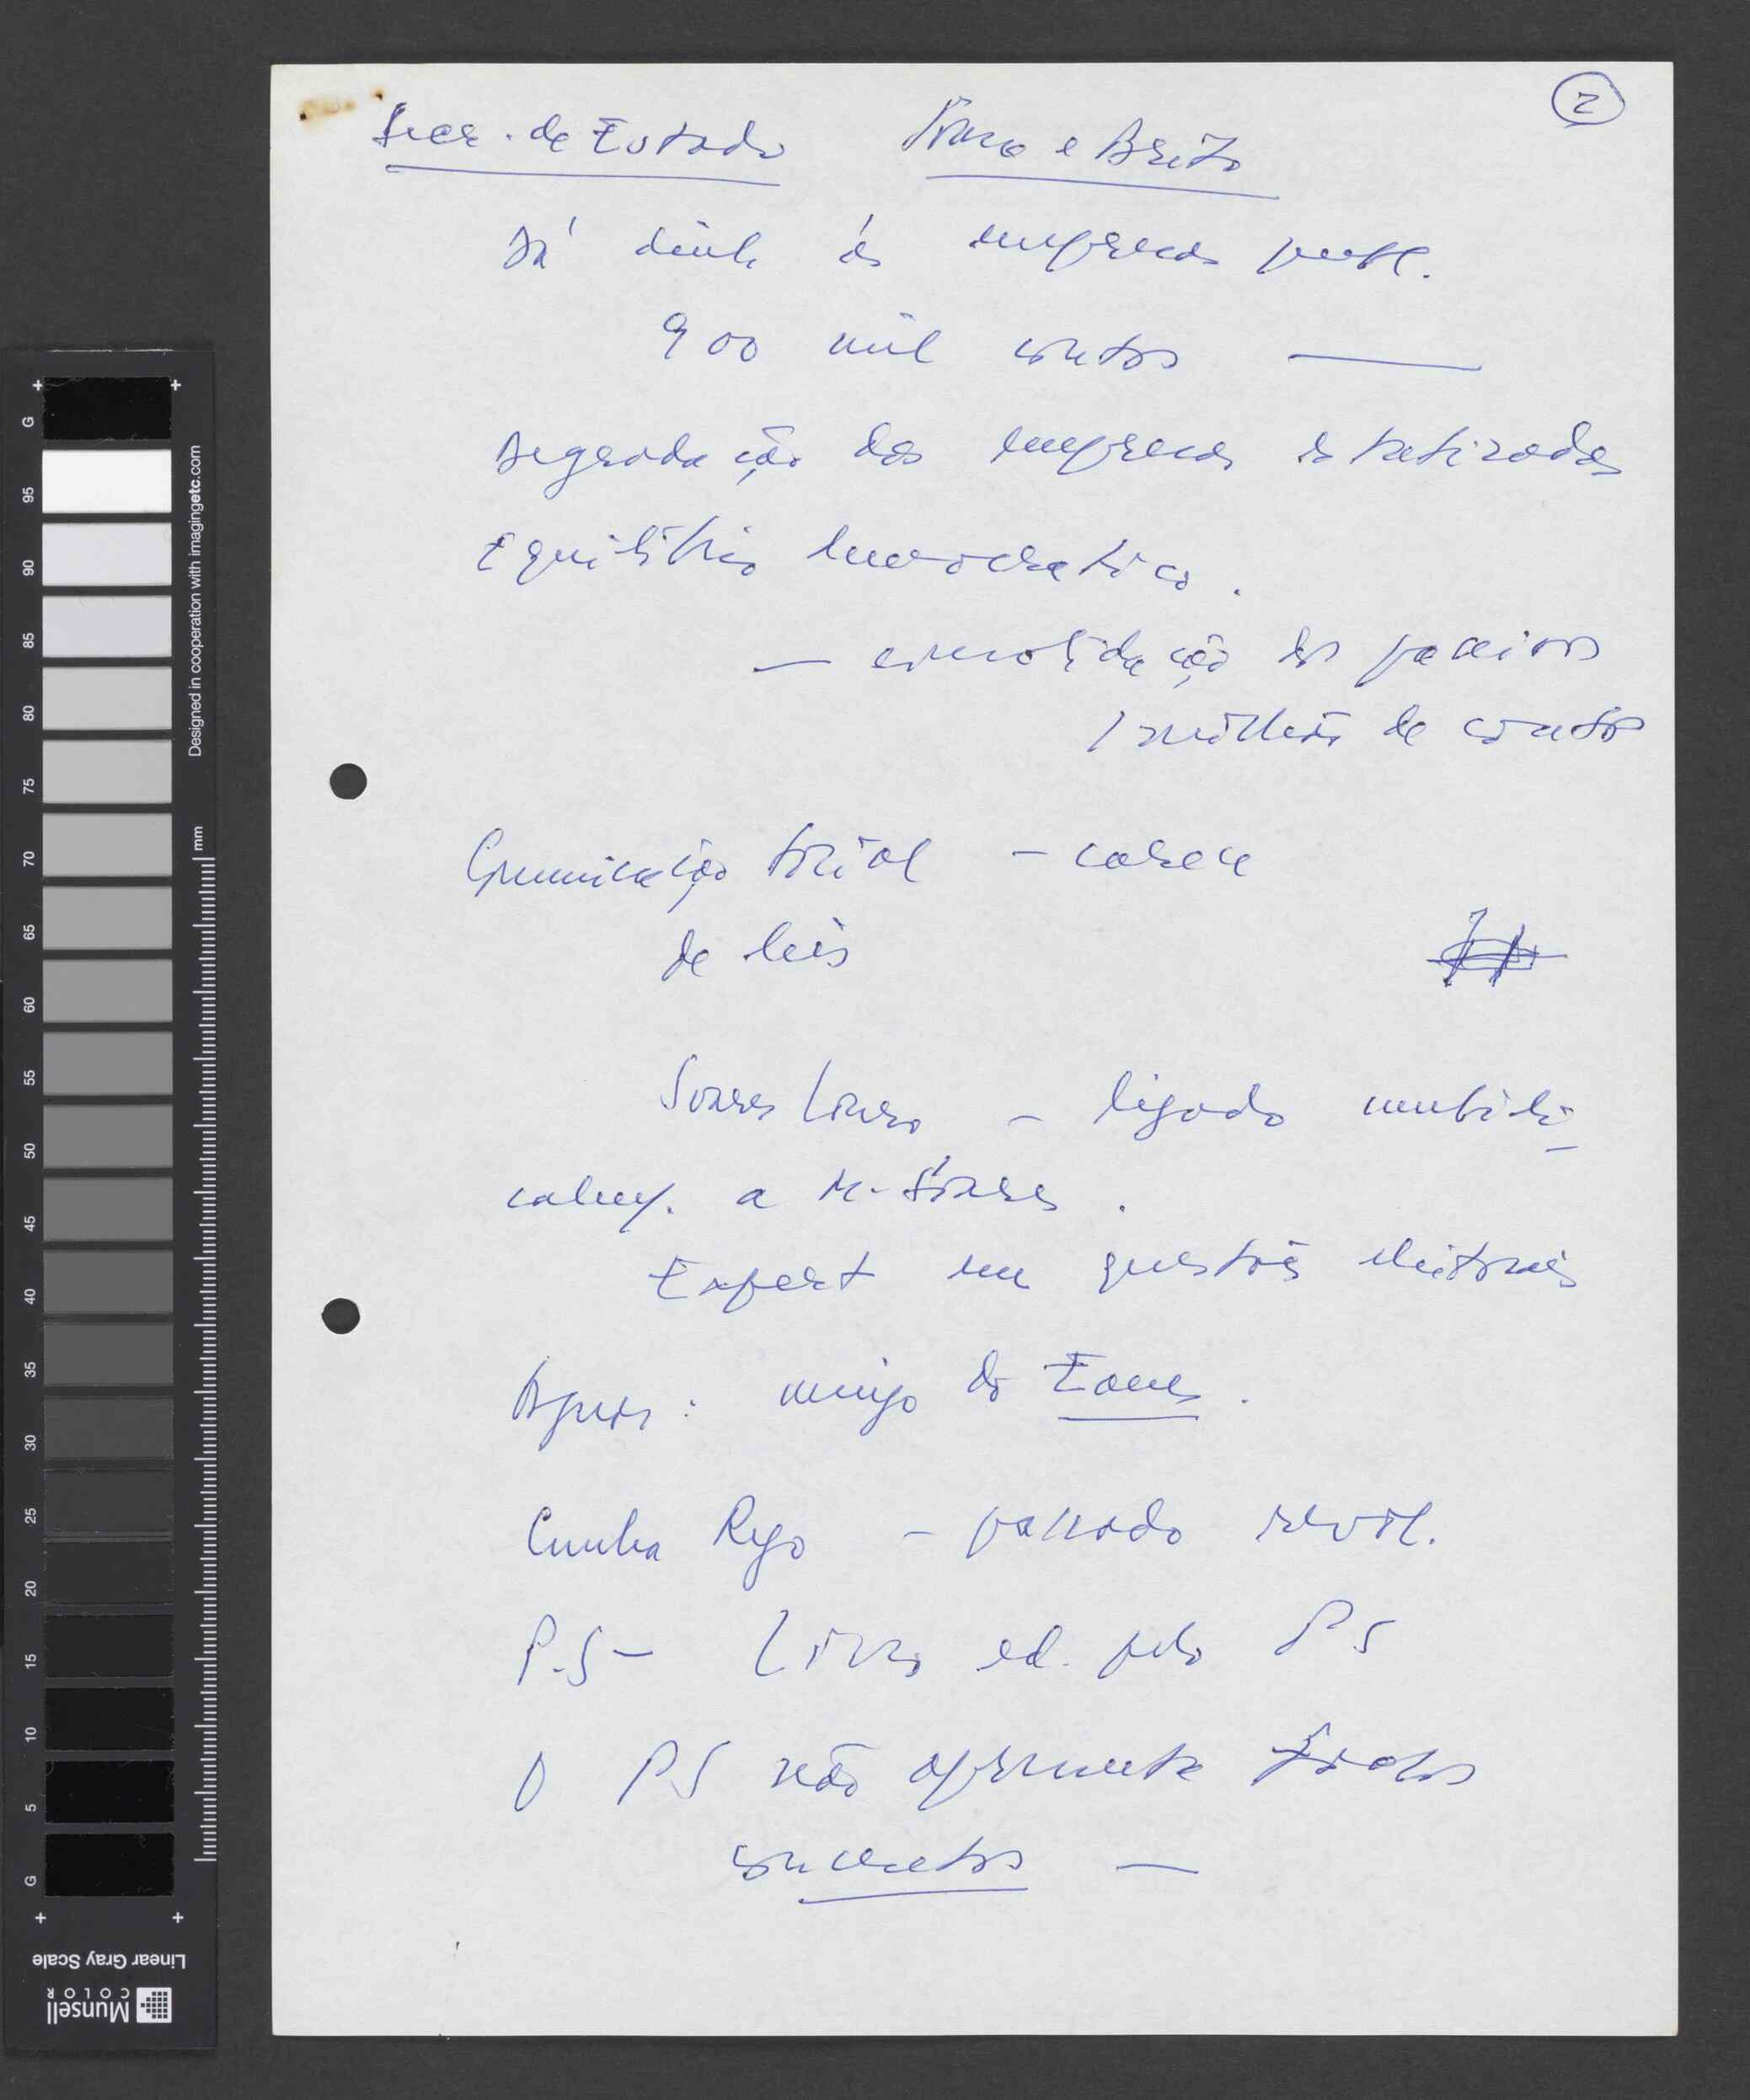 2
Secr. de Estado Sousa e Brito
Dá dinh. às empresas publ.
900 mil contos —
Degradação das empresas estatizadas
Equilíbrio burocratico.
— consolidação dos passivos
1 milhão de contos
Comunicação Social – carece
de leis
Soares Louro – ligado umbili-
calmes. a M. Soares.
Expert em questões eleitorais
Agora: amigo do Eanes.
Cunha Rego – passado revol.
P.S – Livro ed. pelo PS
O PS não apresenta factos
concretos —
G
95
90
85
80
75
70
65
60
55
50
45
40
35
30
25
20
15
10
5
G
mm
Designed in cooperation with imagingetc.com
Linear Gray Scale
Munsell
COLOR